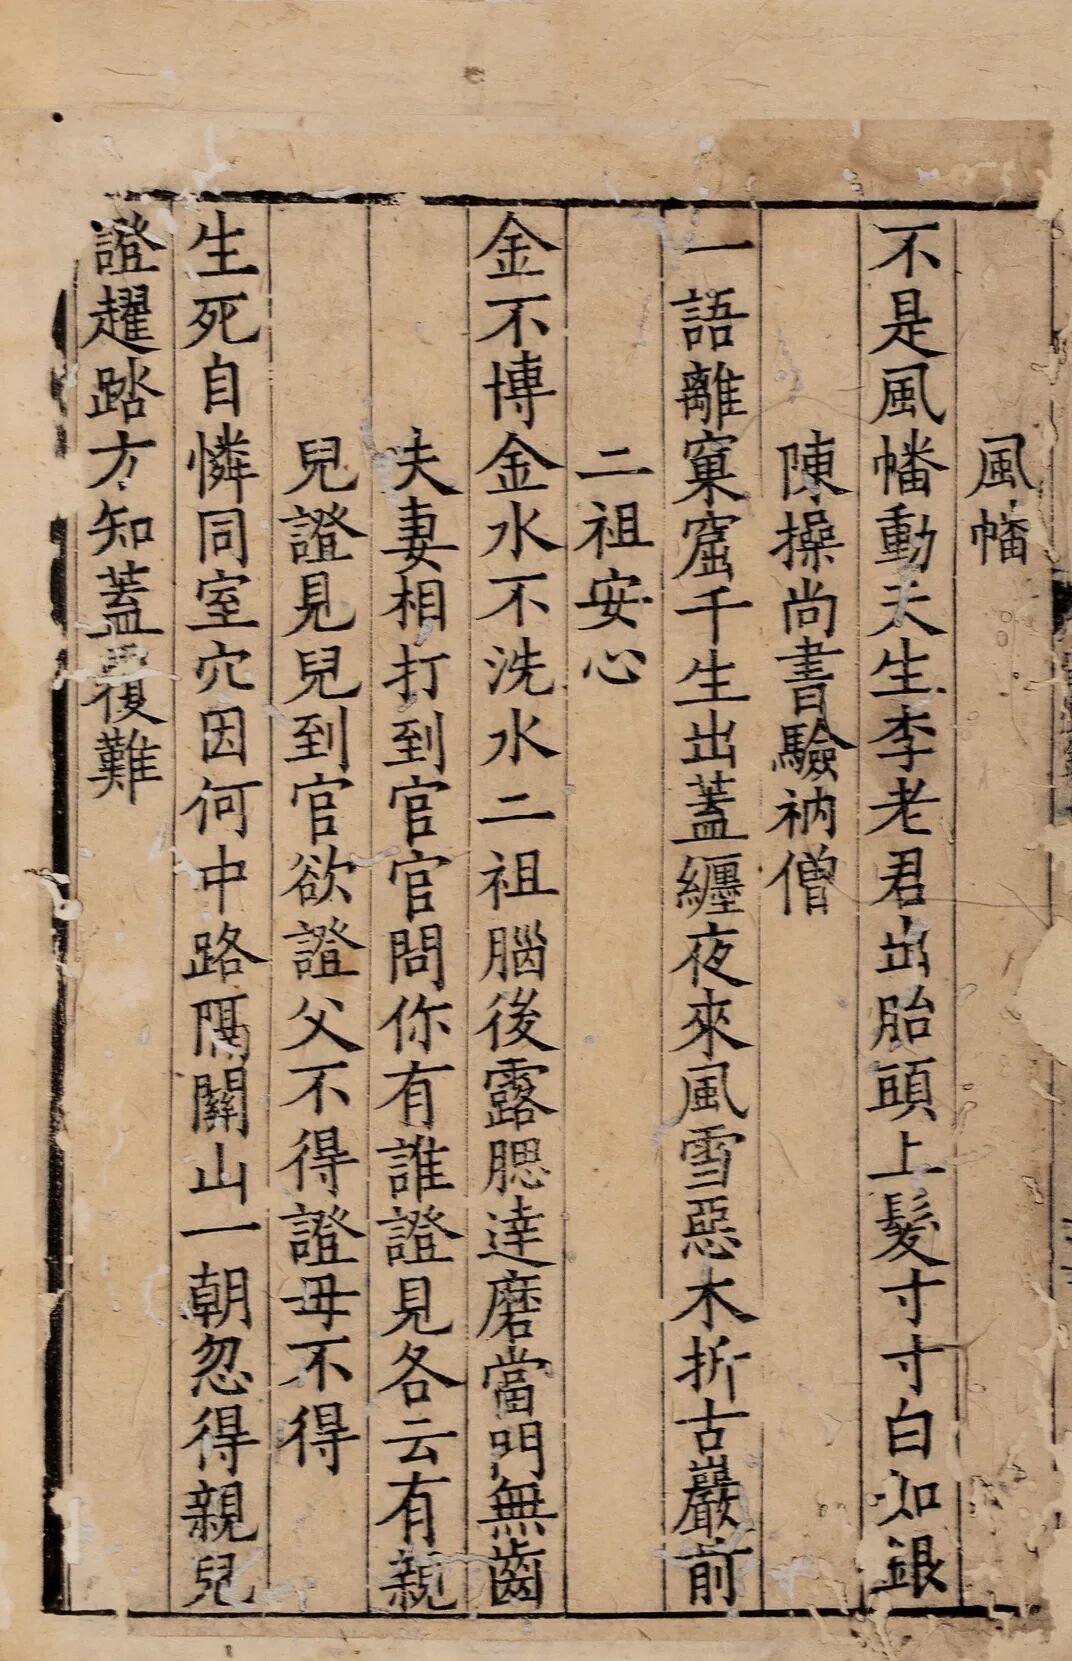 風幡
不是風幡動天生李老君出胎頭上髮寸寸白如銀
陳操尚書驗衲僧
一語離窠窟千生出蓋纏夜來風雪惡木折古巖前
二祖安心
金不博金水不洗水二祖腦後露腮達磨當門無齒
夫妻相打到官官問你有誰證見各云有親
兒證見兒到官欲證父不得證毋不得
生死自憐同室穴因何中路隔關山一朝忽得親兒
證趯踏方知蓋覆難